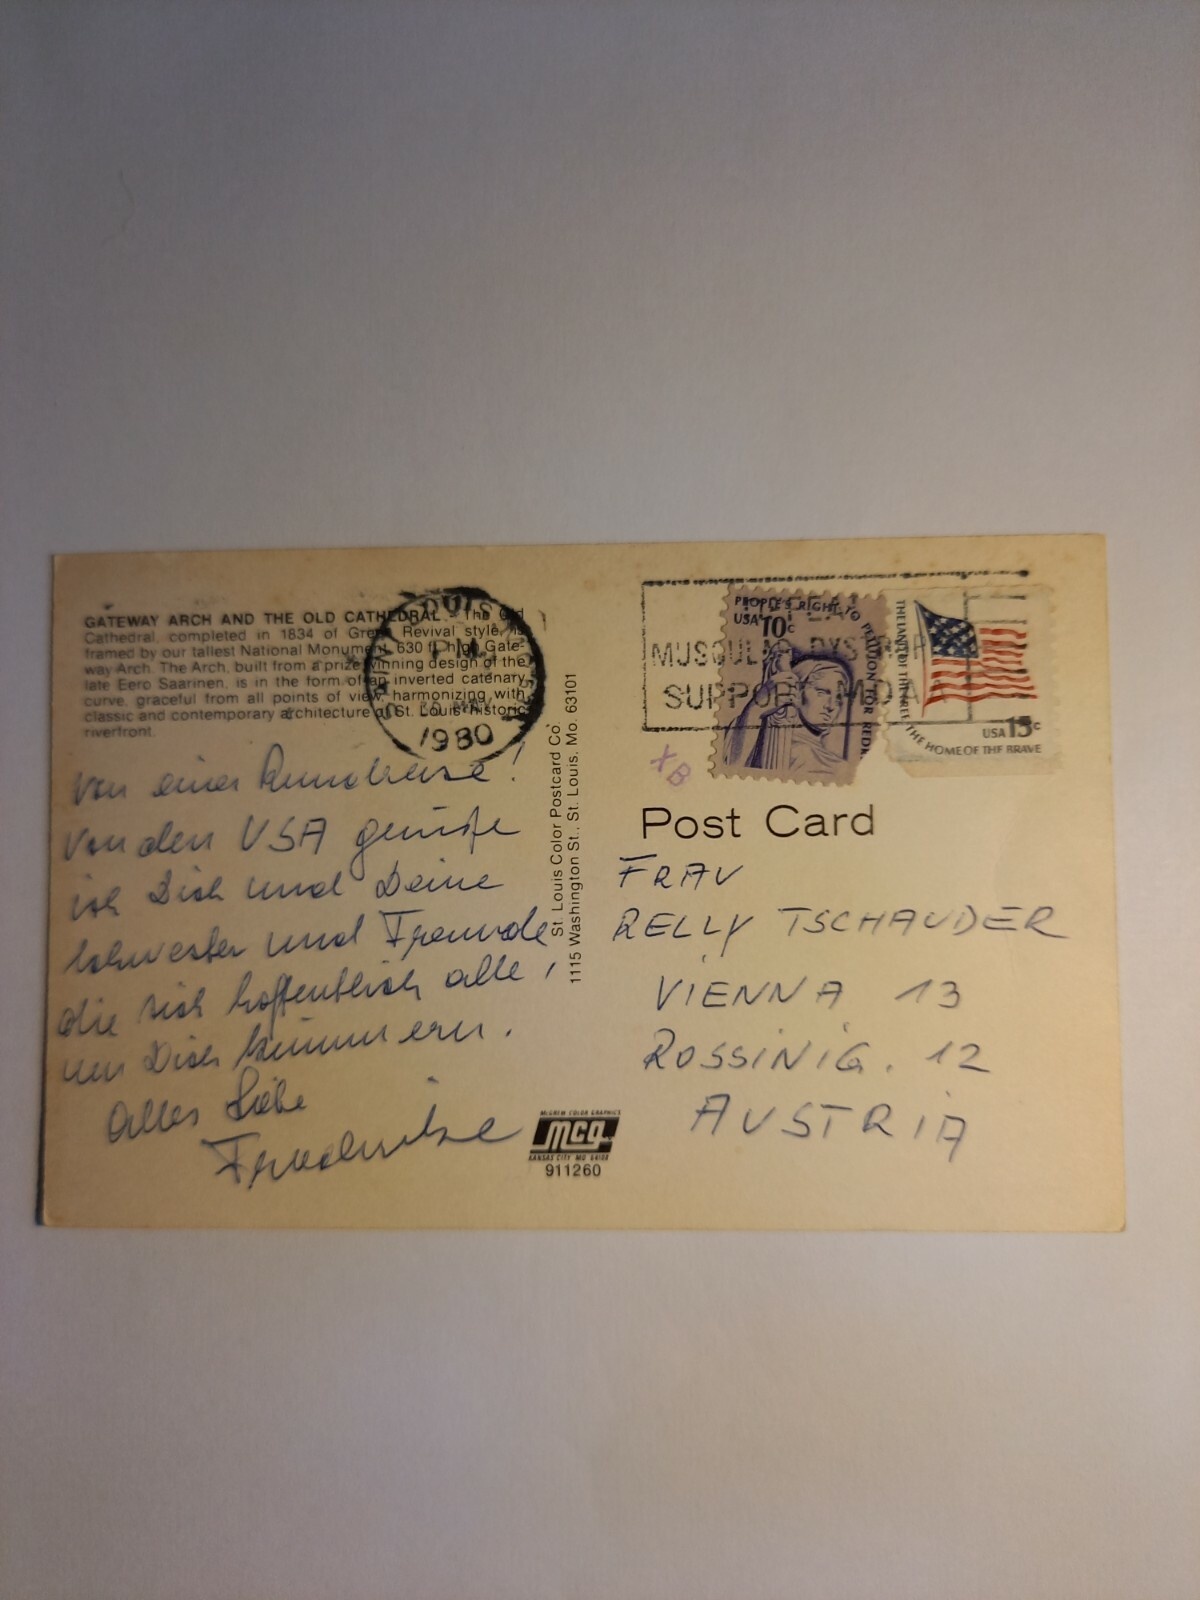 GATEWAY ARCH AND THE OLD CATHEDRAL - The Old
Cathedral, completed in 1834 of Greek Revival style, is
framed by our tallest National Monument, 630 ft. high Gate-
way Arch. The Arch, built from a prize winning design of the
late Eero Saarinen, is in the form of an inverted catenary
curve, graceful from all points of view, harmonizing with
classic and contemporary architecture of St. Louis historic
riverfront.
SAINT LOUIS
PM
MAY
1980
von einer Rundreise!
von den USA grüße
ich Dich und Deine
Schwester und Freunde,
die sich hoffentlich alle,
um Dich kümmern.
Alles Liebe
St. Louis Color Postcard Co.
1115 Washington St., St. Louis, Mo. 63101
McGREW COLOR GRAPHICS
mcg
KANSAS CITY MO 64108
911260
MUSCULAR DYSTROP
SUPPORT MDA
PEOPLE'S RIGHT TO
PETITION FOR REDR
USA 10c
THE LAND OF THE FREE
THE HOME OF THE BRAVE
USA 15c
XB
Post Card
FRAU
RELLY TSCHAUDER
VIENNA 13
ROSSINIG. 12
AUSTRIA